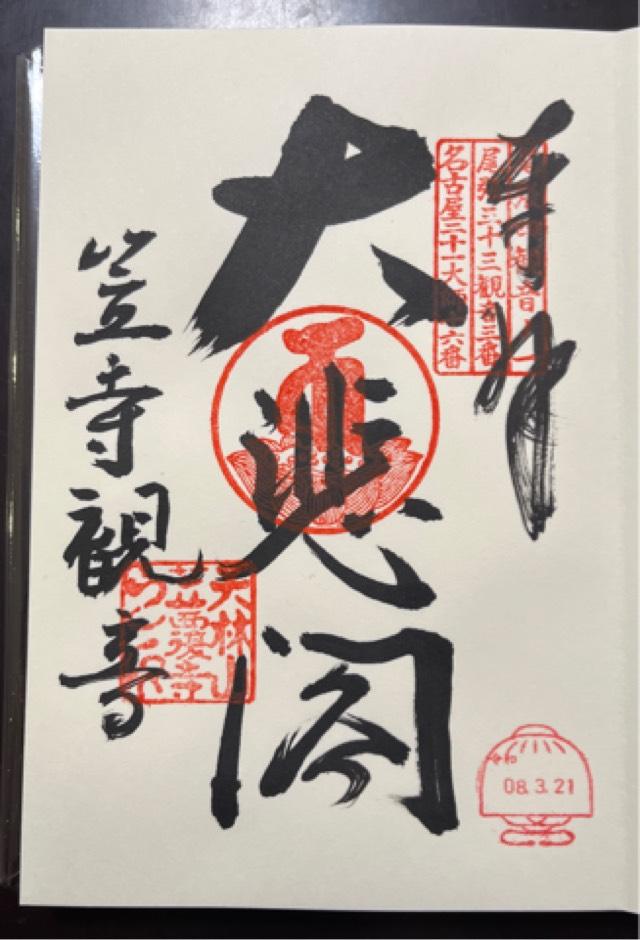 奉拝
尾張三十三観音三番
名古屋二十一大師六番
大悲閣
笠寺観音
天林山
笠覆寺
令和
08.3.21